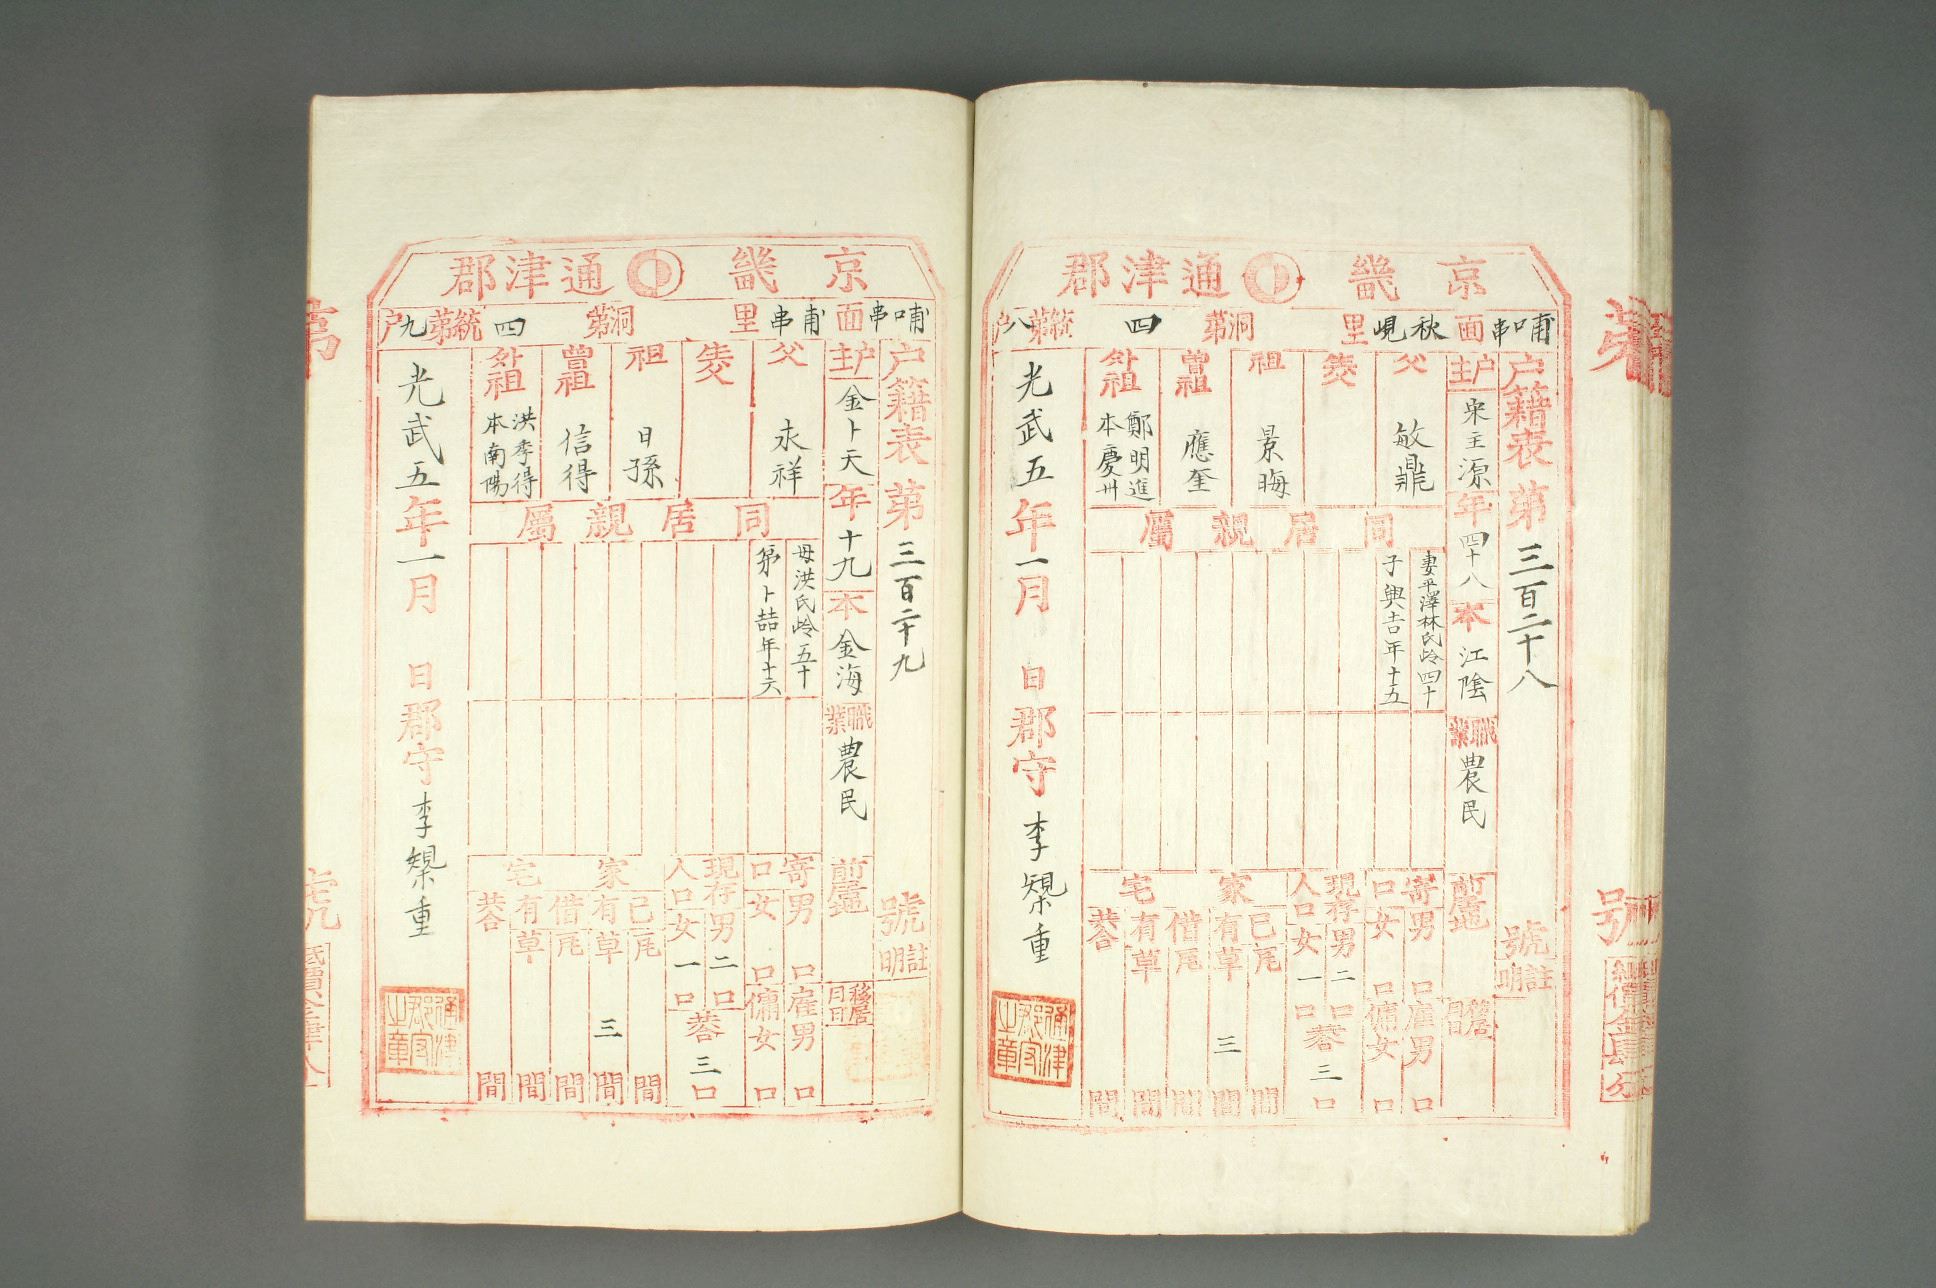 京畿 通津郡
哺口串面 秋峴里 洞第 四統第八户
户籍表 第三百二十八 號
註明
户主 宋主源 年四十八 本 江陰 職業 農民 前居地
移居月日
父 敏鼎
生父
祖 景晦
曾祖 應奎
外祖 鄭明進 本慶州
同居親屬
妻平澤林氏齡四十
子興吉年十五
寄口 男 口 女 口
雇男 口 傭女 口
現存人口 男二口 女一口
共合三口
家宅
己有 瓦 間
有草 三間
借 瓦 間
有草 間
共合 間
光武五年一月 日 郡守 李㮮重
通津郡守之章
京畿 通津郡
哺口串面 甫串里 洞第 四統第九户
户籍表 第三百二十九 號
註明
户主 金卜天 年十九 本 金海 職業 農民 前居地
移居月日
父 永祥
生父
祖 日孫
曾祖 信得
外祖 洪季得 本南陽
同居親屬
母洪氏齡五十
弟卜喆年十六
寄口 男 口 女 口
雇男 口 傭女 口
現存人口 男二口 女一口
共合三口
家宅
己有 瓦 間
有草 三間
借 瓦 間
有草 間
共合 間
光武五年一月 日 郡守 李㮮重
通津郡守之章